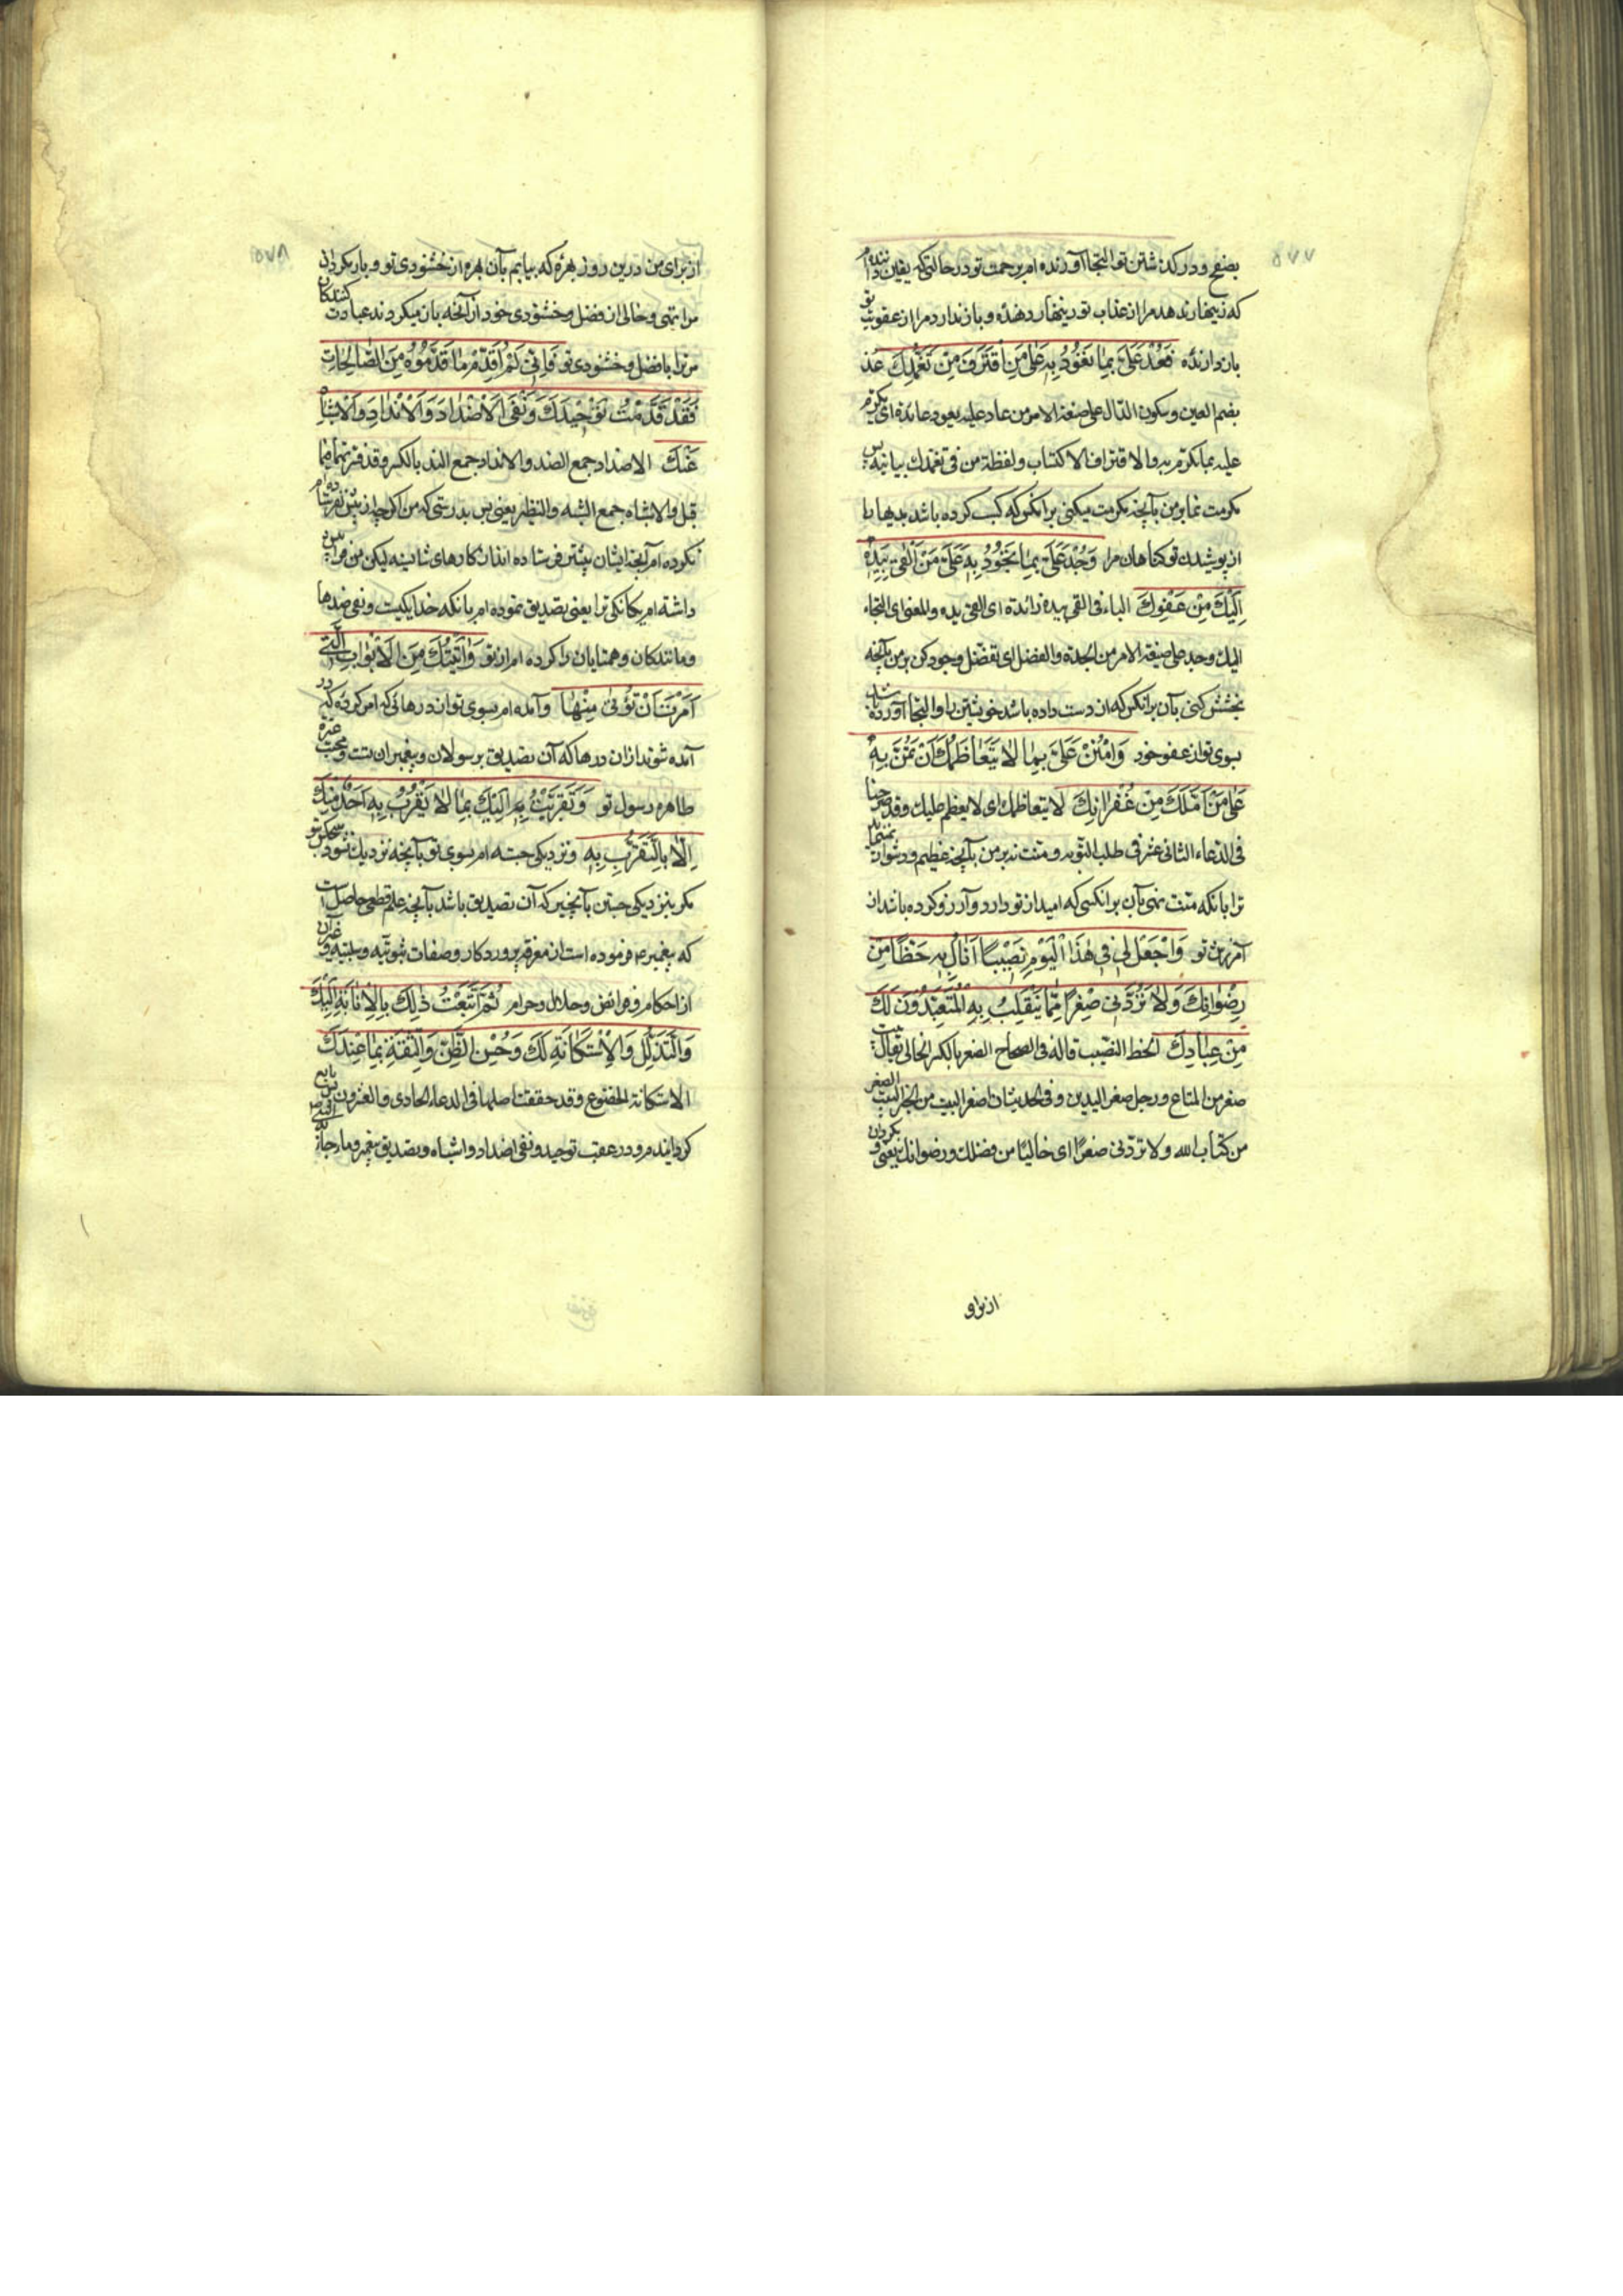 ۵۷۷
بصفح و درگذشتن تو التجا آورنده ام برحمت تو در حالتی که یقین داننده ام
که زینهار ندهد مرا از عذاب تو زینهار دهنده و باز ندارد مرا از عقوبت تو
بازدارنده فَعُدْ عَلَىَّ بِمٰا تَعُودُ بِهِ عَلىٰ مَنِ اقْتَرَفَ مِنْ تَغَمُّدِكَ عد
بضم العین و سکون الدال علی صیغة الامر من عاد علیه یعود عائدة ای تکرم
علیه بما تکرم به والاقتراف الاکتساب ولفظة من فی تغمدك بیانیه یعنی پس
مکرمت نما بر من بآنچه مکرمت میکنی بر انکس که کسب کرده باشد بدیها را
از پوشیدن تو گناهان مرا وَجُدْ عَلَىَّ بِمٰا تَجُودُ بِهِ عَلىٰ مَنْ اَلْقىٰ بِيَدِهِ
اِلَيْكَ مِنْ عَفْوِكَ الباء فی القی بیده زائدة ای القی یده والمعنی ای التجاء
الیك وجد علی صیغة الامر من الجدة والفضل ای تفضل وجود کن بر من بآنچه
بخشش کنی بآن بر انکس که از دست داده باشد خویشتن را و التجا آورده باشد
بسوی تو از عفو خود وَامْنُنْ عَلَىَّ بِمٰا لاٰ يَتَعٰاظَمُكَ اَنْ تَمُنَّ بِهِ
عَلىٰ مَنْ اَمَّلَكَ مِنْ غُفْرٰانِكَ لا یتعاظمك ای لا یعظم علیك وقد صرحنا
فی الدعاء الثانی عشر فی طلب التوبه و منت نه بر من بآنچه عظیم و دشوار نمینماید
ترا بانکه منت نهی بآن بر انکسی که امید از تو دارد و آرزو کرده باشد از
آمرزش تو وَاجْعَلْ لِى فِى هٰذَا الْيَوْمِ نَصِيْبًا اَنٰالُ بِهِ حَظًّا مِنْ
رِضْوٰانِكَ وَلاٰ تَرُدَّنِى صِفْرًا مِمّٰا يَنْقَلِبُ بِهِ الْمُتَعَبِّدُوْنَ لَكَ
مِنْ عِبٰادِكَ الحظ النصیب قاله فی الصحاح الصفر بالکسر الخالی یقال بیت
صفر من المتاع و رجل صفر الیدین و فی الحدیث ان اصفر البیت من الخیر البیت الصفر
من کتاب الله ولا تردنی صفرا ای خالیا من فضلك و رضوانك یعنی و بگردان
از برای
۵۷۸
از برای من درین روز بهرهٔ که بیابم بآن بهره از خشنودی تو و باز مگردان
مرا تهی و خالی از فضل و خشنودی خود از آنچه بان میگردند عبادت کنندگان
مر ترا با فضل و خشنودی تو وَاِنِّى وَاِنْ لَمْ اُقَدِّمْ مٰا قَدَّمُوْهُ مِنَ الصّٰالِحٰاتِ
فَقَدْ قَدَّمْتُ تَوْحِيْدَكَ وَنَفْىَ الْاَضْدٰادِ وَالْاَنْدٰادِ وَالْاَشْبٰاهِ
عَنْكَ الاضداد جمع الضد والانداد جمع الند بالکسر وقد فسرتهما فیما
قبل والاشباه جمع الشبه والنظیر یعنی پس بدرستی که من اگر چه از پیش نفرستاده ام
نکرده ام آنچه ایشان پیشتر فرستاده اند از کارهای شایسته لیکن من
داشته ام یگانگی ترا یعنی تصدیق نموده ام بانکه خدا یکیست و نفی ضدها
و مانندگان و همتایان را کرده ام از تو وَاَتَيْتُكَ مِنَ الْاَبْوٰابِ الَّتِى
اَمَرْتَ اَنْ تُؤْتىٰ مِنْهٰا و آمده ام بسوی تو از درهائی که امر کردهٔ که در
آمده شوند از ان درها که آن تصدیق برسولان و پیغمبران تست و محبت عترة
طاهره رسول تو وَتَقَرَّبْتُ اِلَيْكَ بِمٰا لاٰ يَقْرُبُ بِهِ اَحَدٌ مِنْكَ
اِلاّٰ بِالتَّقَرُّبِ بِهِ و نزدیکی جسته ام بسوی تو بآنچه نزدیك نشود کسی بتو
مگر بنزدیکی جستن بآنچیز که آن تصدیق باشد بآنچه علم قطعی حاصل است
که پیغمبر ع فرموده است از معرفة پروردگار و صفات ثبوتیه و سلبیه و غیر آن
از احکام و فرائض و حلال و حرام ثُمَّ اَتْبَعْتُ ذٰلِكَ بِالْاِنٰابَةِ اِلَيْكَ
وَالتَّذَلُّلِ وَالْاِسْتِكٰانَةِ لَكَ وَحُسْنِ الظَّنِّ وَالثِّقَةِ بِمٰا عِنْدَكَ
الاستکانة الخضوع وقد حققت اصلها فی الدعاء الحادی والعشرون
گردانیدم و در عقب توحید و نفی اضداد و اشباه و تصدیق پیغمبر و ما جاء به